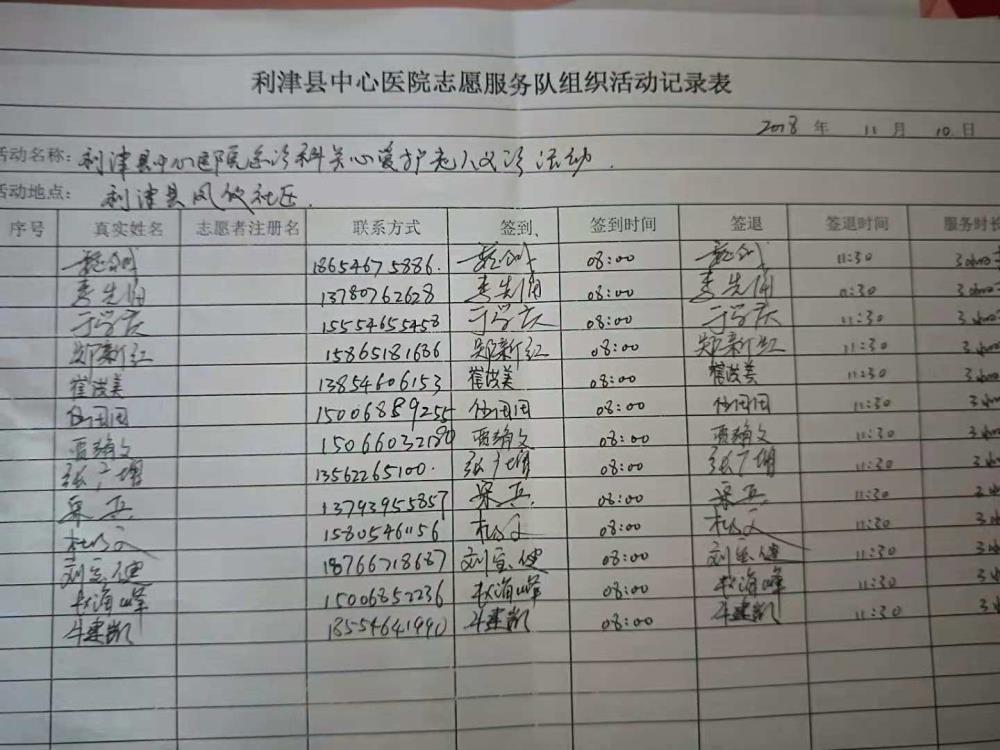 利津县中心医院志愿服务队组织活动记录表
2018 年 11 月 10 日
活动名称：利津县中心医院急诊科关心爱护老人义诊活动.
活动地点：利津县凤仪社区.
序号 真实姓名 志愿者注册名 联系方式 签到、 签到时间 签退 签退时间 服务时长
18654675886. 08:00 11:30
李先伟 13780762628 李先伟 08:00 李先伟 11:30
于学庆 15554655458 于学庆 08:00 于学庆 11:30
郑新红 15865181686 郑新红 08:00 郑新红 11:30
崔洪美 13854606153 崔洪美 08:00 崔洪美 11:30
15006889255 08:00 11:30
贾瑞文 15066032180 贾瑞文 08:00 贾瑞文 11:30
张广明 13562265100. 张广明 08:00 张广明 11:30
13793955857 08:00 11:30
15805461156 08:00 11:30
刘宝健 18766718687 刘宝健 08:00 刘宝健 11:30
赵海峰 15006852236 赵海峰 08:00 赵海峰 11:30
牛建凯 18554641990 牛建凯 08:00 牛建凯 11:30